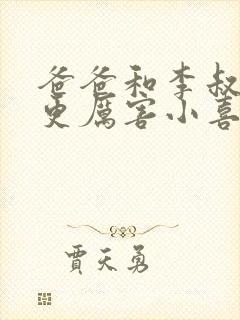 爸爸和李叔
更厲害小喜
賈天勇